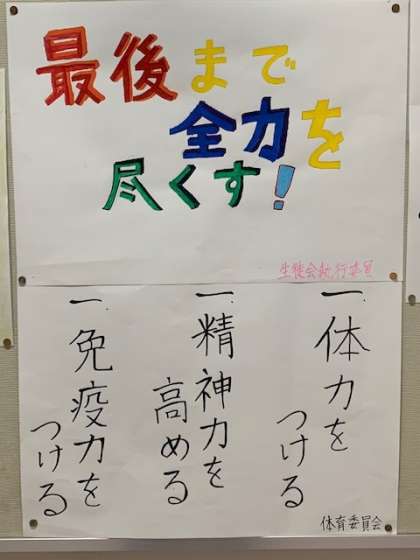 最後まで
全力を
尽くす!
生徒会執行委員
一.体力を
つける
一.精神力を
高める
一.免疫力を
つける
体育委員会